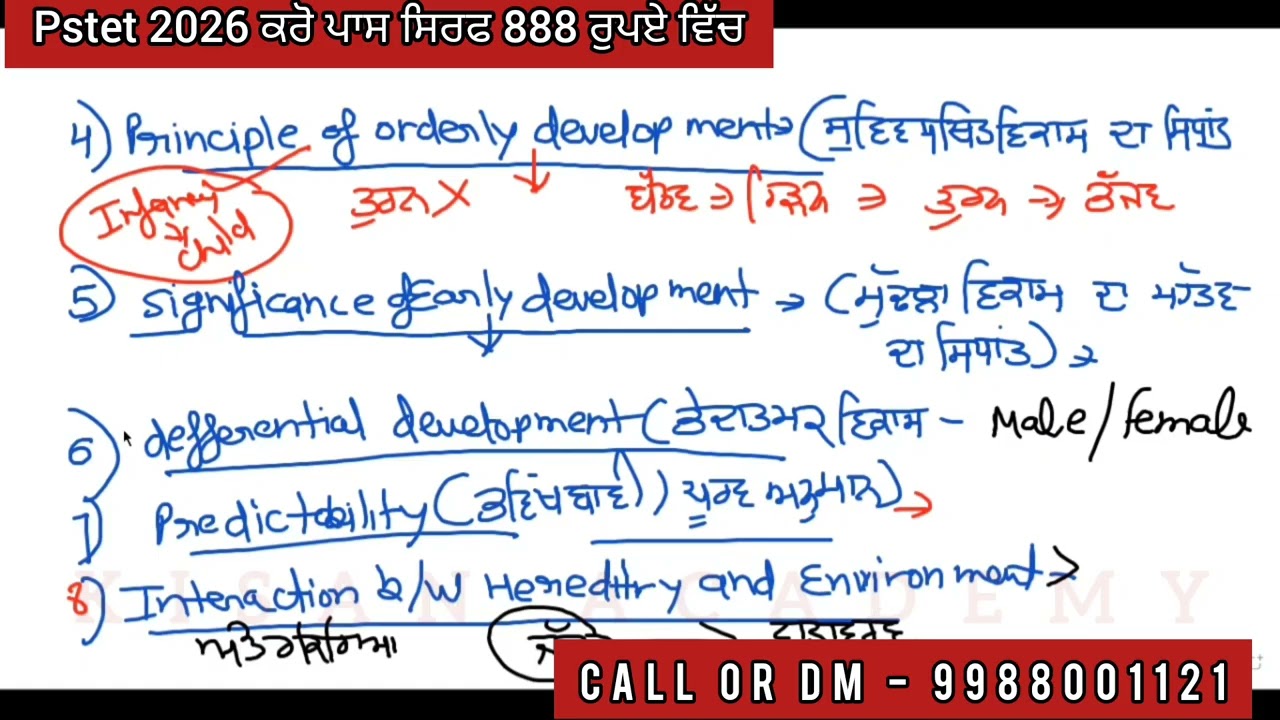 Pstet 2026 ਕਰੋ ਪਾਸ ਸਿਰਫ 888 ਰੁਪਏ ਵਿੱਚ
4) Principle of orderly development → (ਸੁਵਿਵਸਥਿਤ ਵਿਕਾਸ ਦਾ ਸਿਧਾਂਤ
Infancy → child
ਤੁਰਨ X ਬੈਠਣ → ਰਿੜਨ → ਤੁਰਨ → ਭੱਜਣ
5) significance of Early development → (ਮੁੱਢਲਾ ਵਿਕਾਸ ਦਾ ਮਹੱਤਵ
ਦਾ ਸਿਧਾਂਤ) →
6) defferential development (ਭੇਦਾਤਮਕ ਵਿਕਾਸ - Male/female
7) Predictability (ਭਵਿੱਖਬਾਣੀ) ਪੂਰਵ ਅਨੁਮਾਨ) →
8) Interaction b/w Hereditry and Environment →
KISAN ACADEMY
ਵਾਤਾਵਰਣ
CALL OR DM - 9988001121